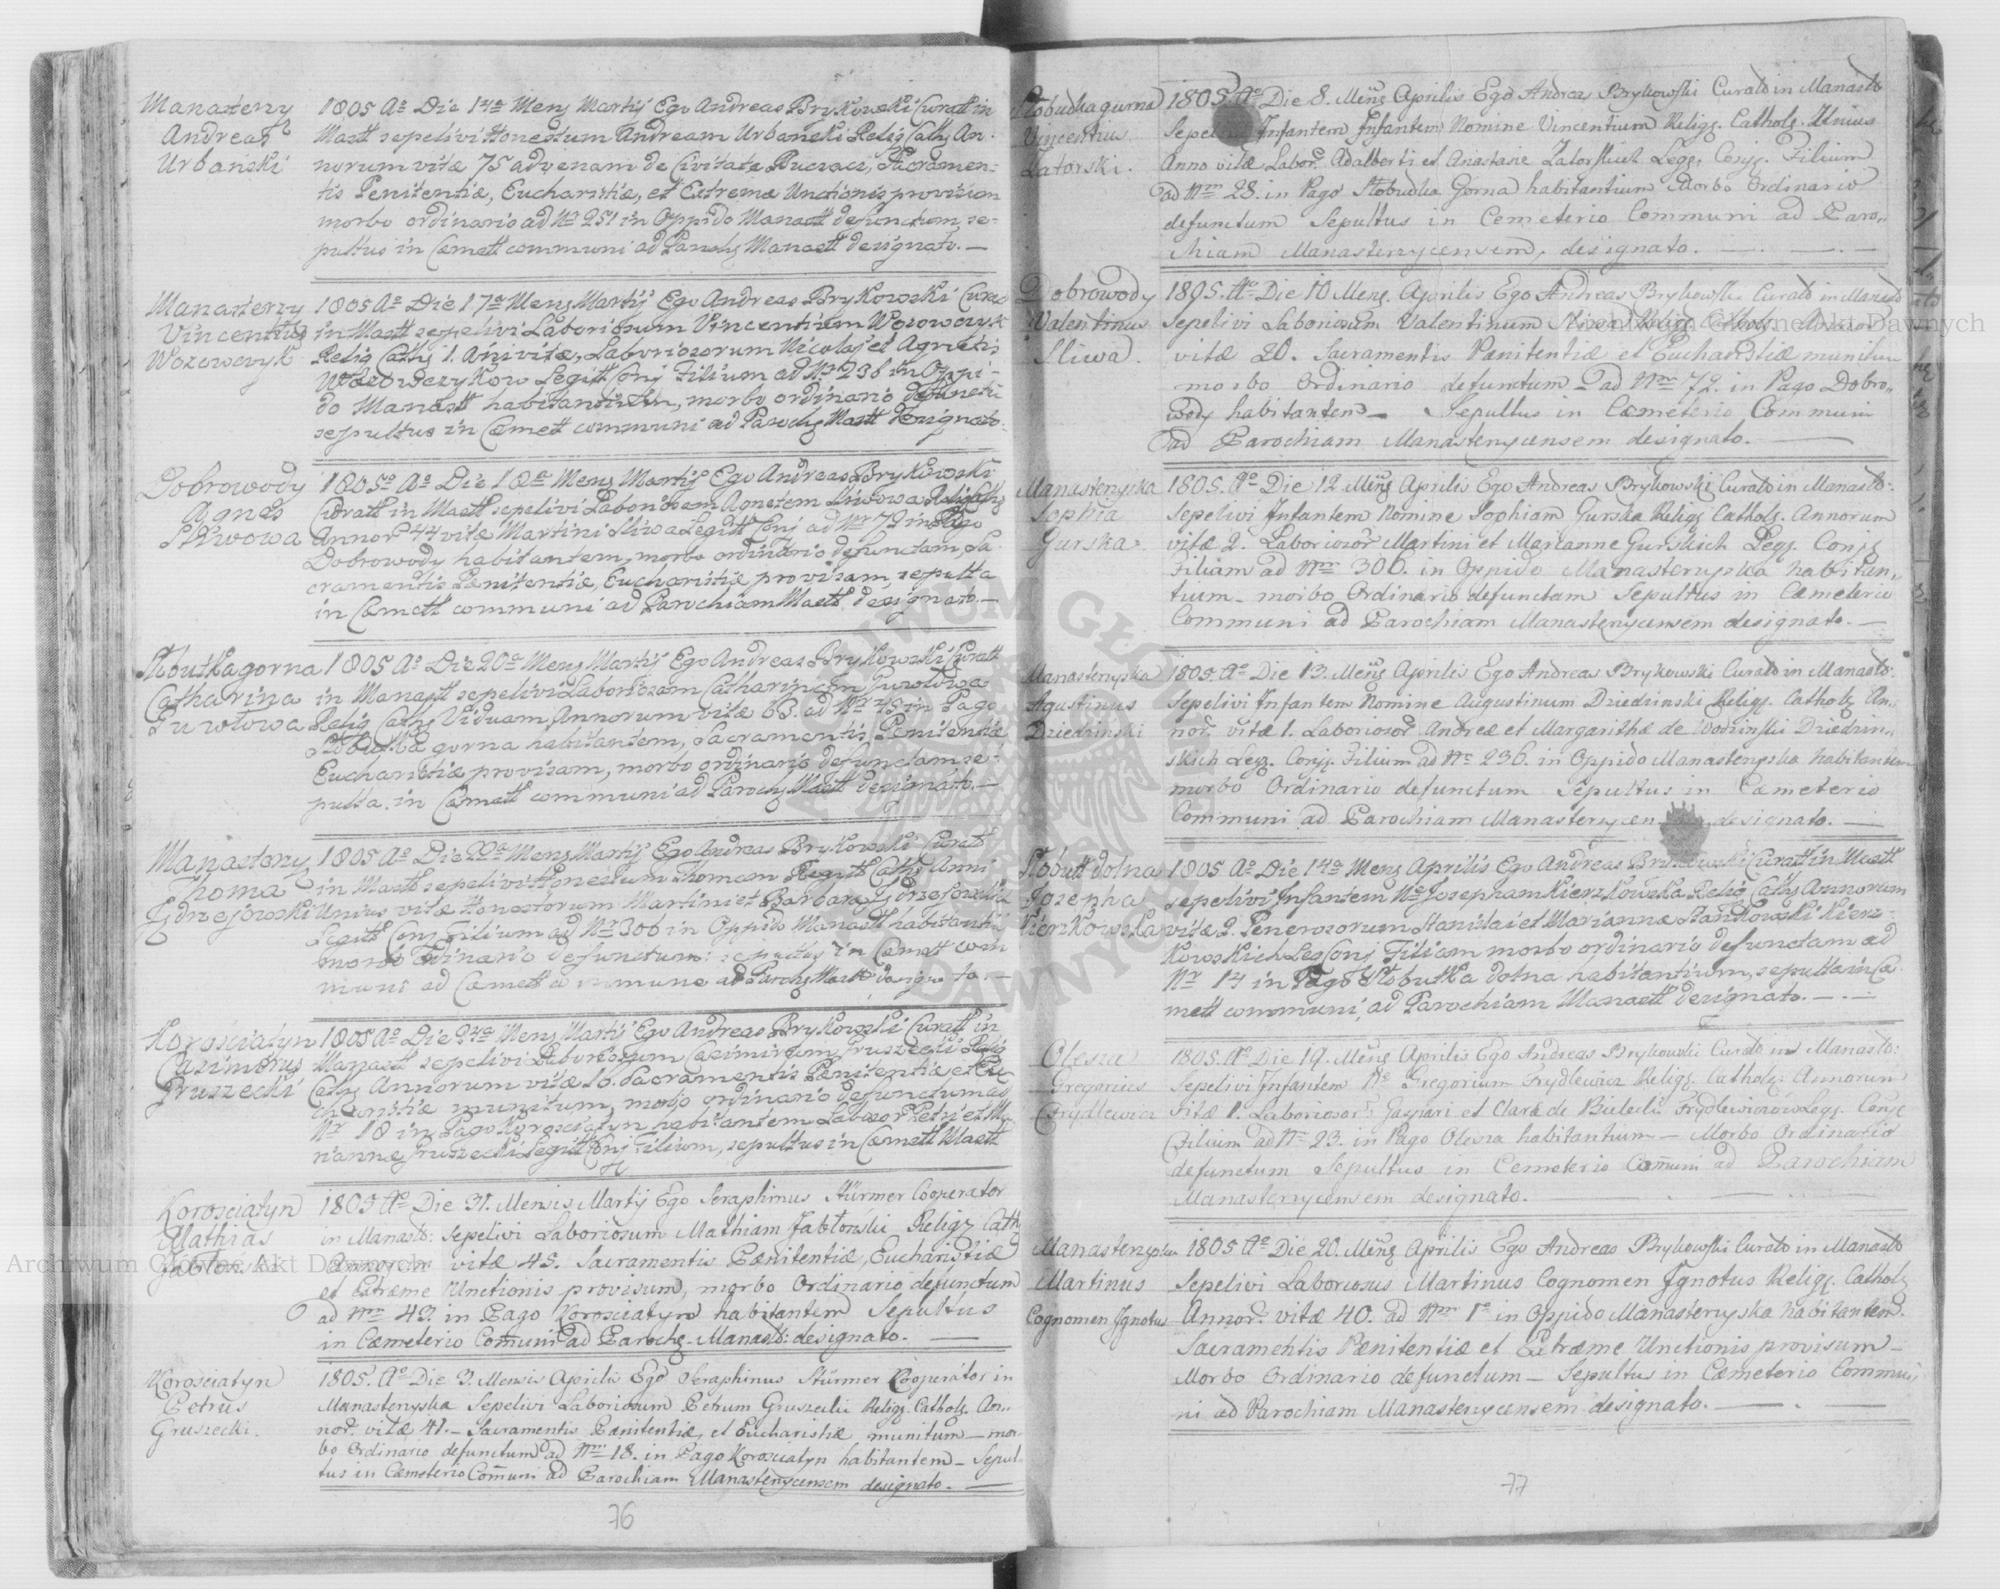 Manastery
Andreas
Urbański
1805 Ao Die 14a Mens Martij Ego Andreas Brykowski Curatt in
Mastt sepelivi Honestum Andream Urbański Relig Cath An-
norum vitæ 75 advenam de Civitate Buczacz, Sacramen-
tis Penitentiæ, Eucharistiæ, et Extremæ Unctionis provisum
morbo ordinario ad Nr 251 in Oppido Manastt defunctum, se-
pultus in Cæmett communi ad Paroch Manastt designato. —
Manasterzy
Vincentius
Wozowczyk
1805 Ao Die 17a Mens Martij Ego Andreas Brykowski Curatt
in Mastt sepelivi Laboriosum Vincentium Wozowczyk
Relig Cath 1. Ani vitæ, Laboriosorum Nicolai et Agnetis
Wozowczykow Legitt Conj Filium ad Nr 236 in Oppi-
do Manastt habitantium, morbo ordinario defuncti
sepultus in Cæmett communi ad Paroch Mastt designato.
Dobrowody
Agnes
Sliwowa
1805o Ao Die 18a Mens Martij Ego Andreas Brykowski
Curatt in Mastt sepelivi Laboriosam Agnetem Sliwowa Relig Cath
Annor 44 vitæ Martini Sliwa Legitt Conj ad Nr 72 in Pago
Dobrowody habitantem, morbo ordinario defunctam, Sa-
cramentis Penitentiæ, Eucharistiæ provisam, sepulta
in Cæmett communi ad Parochiam Mastt designato. —
Słobutka gorna
Catharina
1805 Ao Die 20a Mens Martij Ego Andreas Brykowski Curatt
in Manastt sepelivi Laboriosam Catharinam
Relig Cath Viduam, Annorum vitæ 63. ad Nr in Pago
Słobutka gorna habitantem, Sacramentis Penitentiæ
Eucharistiæ provisam, morbo ordinario defunctam se-
pulta. in Cæmett communi ad Paroch Mastt designato. —
Manastery
Thoma
1805 Ao Die 22a Mens Martij Ego Andreas Brykowski Curatt
in Mastt sepelivi Honestum Thomam Cath Anni
Unius vitæ Honestorum Martini et Barbara
Legitt Conj Filium ad Nr 306 in Oppido Manastt habitantium
morbo ordinario defunctum: sepultus in Cæmett com
muni ad Cæmett communo ad Paroch Mastt designato. —
Korościatyn
Casimirus
Gruszecki
1805 Ao Die 24a Mens Martij Ego Andreas Brykowski Curatt in
Manastt sepelivi Laboriosum Casimirum Gruszecki Relig
Cath Annorum vitæ 10. Sacramentis Pænitentiæ et Eu
charistiæ munitum, morbo ordinario defunctum ad
Nr 18 in Pago Korosciatyn habitantem Labor Petri et Ma
riannæ Gruszecki Legitt Conj Filium, sepultus in Cæmett Mastt
Korosciatyn
Mathias
Jabłoński
1805 Ao Die 31. Mensis Martij Ego Seraphinus Stürmer Cooperator
in Manastt: Sepelivi Laboriosum Mathiam Jabłoński Religz Cath
Annorum vitæ 45. Sacramentis Pænitentiæ, Eucharistiæ
et Extræme Unctionis provisum, morbo Ordinario defunctum
ad Nrm 43. in Pago Korosciatyn habitantem Sepultus
in Cæmeterio Communi ad Parochz Manastt: designato. —
Korosciatyn
Petrus
Gruszecki.
1805. Ao Die 3. Mensis Aprilis Ego Seraphinus Stürmer Cooperátor in
Manasterzyska Sepelivi Laboriosum Petrum Gruszecki Religz Catholz. An-
nor. vitæ 41. — Sacramentis Pænitentiæ, et Eucharistiæ munitum — mor-
bo Ordinario defunctum ad Nrm 18. in Pago Korosciatyn habitantem — Sepul-
tus in Cæmeterio Communi ad Parochiam Manasterzycensem designato. —
76
Słobudka gurna
Vincentius
Zatorski.
1805. Ao Die 8. Mens Aprilis Ego Andreas Brykowski Curatto in Manastt
Sepelivi Infantem Infantem Nomine Vincentium Religz. Catholz. Unius
Anno vitæ Labor. Adalberti et Anastasie Zatorskich Legz. Conjz. Filium
ad Nrm 28. in Pago Słobudka Gorna habitantium Morbo Ordinario
defunctum Sepultus in Cemeterio Communi ad Paro-
chiam Manasterzycensem, designato. — . — . —
Dobrowody
Valentinus
Sliwa.
1805. Ao Die 10 Mens. Aprilis Ego Andreas Brykowski Curatto in Manastt
Sepelivi Laboriosum Valentinum Sliwa Religz Catholz. Annor
vitæ 20. Sacramentis Pænitentiæ et Eucharistiæ munitum
morbo Ordinario defunctum — ad Nrm 72. in Pago Dobro-
wody habitantem — Sepultus in Cæmeterio Communi
ad Parochiam Manasterzycensem designato. —
Manasterzyska
Sophia
Gurska.
1805. Ao Die 12 Mens Aprilis Ego Andreas Brykowski Curatto in Manastt:
Sepelivi Infantem Nomine Sophiam Gurska Religz Catholz. Annorum
vitæ 2. Laboriosor Martini et Marianne Gurskich Legz. Conjz
Filiam ad Nrm 306. in Oppido Manasterzyska habitan-
tium — morbo Ordinario defunctam Sepultus in Cæmeterio
Communi ad Parochiam Manasterzycensem designato. —
Manasterzyska
Agustinus
Driedzinski
1805. Ao Die 13. Mens Aprilis Ego Andreas Brykowski Curatto in Manastt:
Sepelivi Infantem Nomine Augustinum Driedzinski Religz. Catholz An-
nor. vitæ 1. Laboriosor Andreæ et Margarithæ de Wodzinski Driedzin-
skich Legz. Conjz. Filium ad Nr 236. in Oppido Manasterzyska habitantem
morbo Ordinario defunctum Sepultus in Cæmeterio
Communi ad Parochiam Manasterzycen designato. —
Słobutt dolna
Josepha
Kierzkowska
1805 Ao Die 14a Mens Aprilis Ego Andreas Brykowski Curatt in Mastt
sepelivi Infantem Ne Josepham Kierzkowska Relig Cath Annorum
vitæ 2. Generosorum Stanislai et Mariannæ Stańkowski Kierz-
kowskich Leg Conj Filiam morbo ordinario defunctam ad
Nr 14 in Pago Słobutka dolna habitantium, sepulta in Cæ-
mett communi, ad Parochiam Manastt designato. — . —
Olesza
Gregorius
Frydlewicz
1805. Ao Die 19. Mens Aprilis Ego Andreas Brykowski Curatto in Manastt:
Sepelivi Infantem Ne Gregorium Frydlewicz Religz. Catholz. Annorum
Vitæ 1. Laboriosor. Gaspari et Claræ de Bielecki Frydlewiczow Legz. Conjz
Filium ad Nr 23. in Pago Olesza habitantium — Morbo Ordinario
defunctum Sepultus in Cemeterio Communi ad Parochiam
Manasterzycensem designato. — . —
Manasterzyska
Martinus
Cognomen Ignotus
1805 Ao Die 20. Mens Aprilis Ego Andreas Brykowski Curatto in Manastt
Sepelivi Laboriosus Martinus Cognomen Ignotus Religz. Catholz
Annor. vitæ 40. ad Nrm 1o in Oppido Manasterzyska habitantem.
Sacramentis Pænitentiæ et Extræme Unctionis provisum —
Morbo Ordinario defunctum — Sepultus in Cæmeterio Commu-
ni ad Parochiam Manasterzycensem designato. — . —
77
Archiwum Główne Akt Dawnych
Archiwum Główne Akt Dawnych
ARCHIWUM GŁÓWNE AKT DAWNYCH